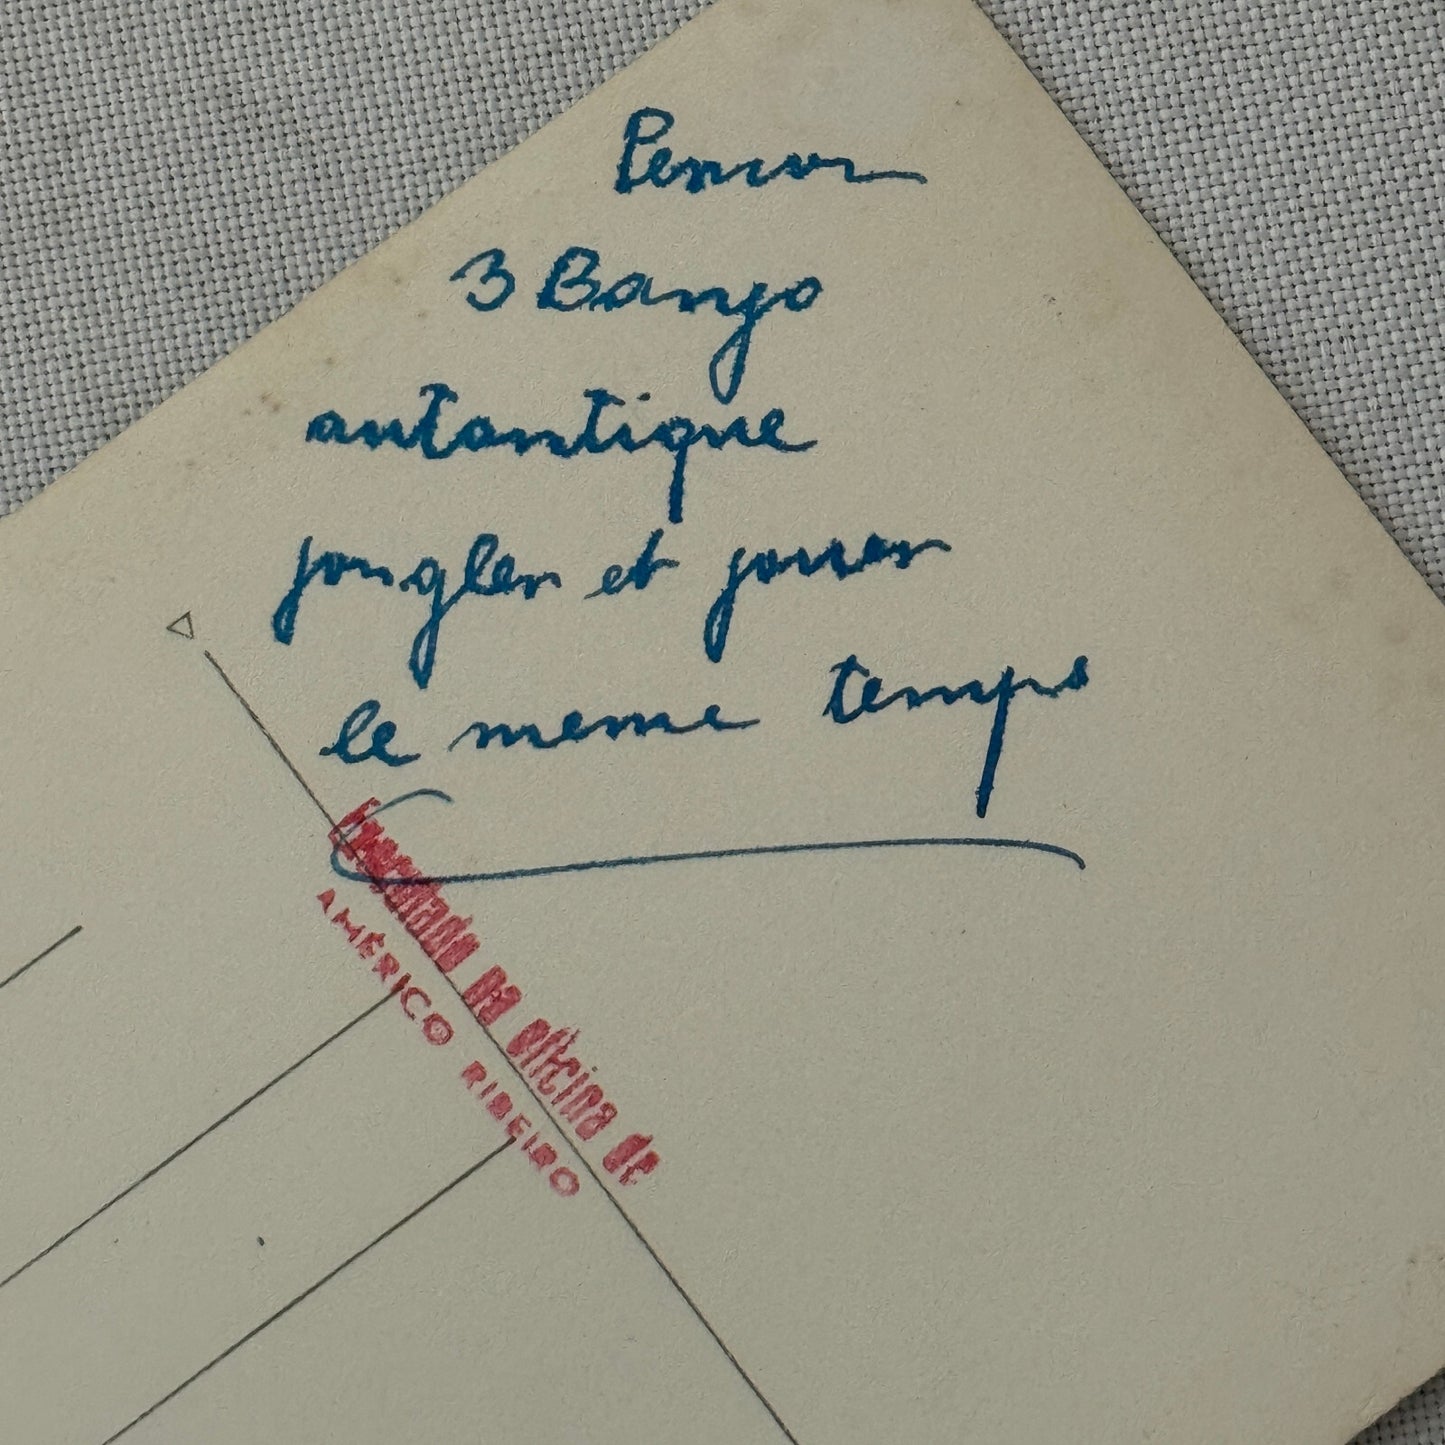 3 Banjo
autantique
jongler et jouer
le meme temps
Empenado na oficina de
AMÉRICO RIBEIRO